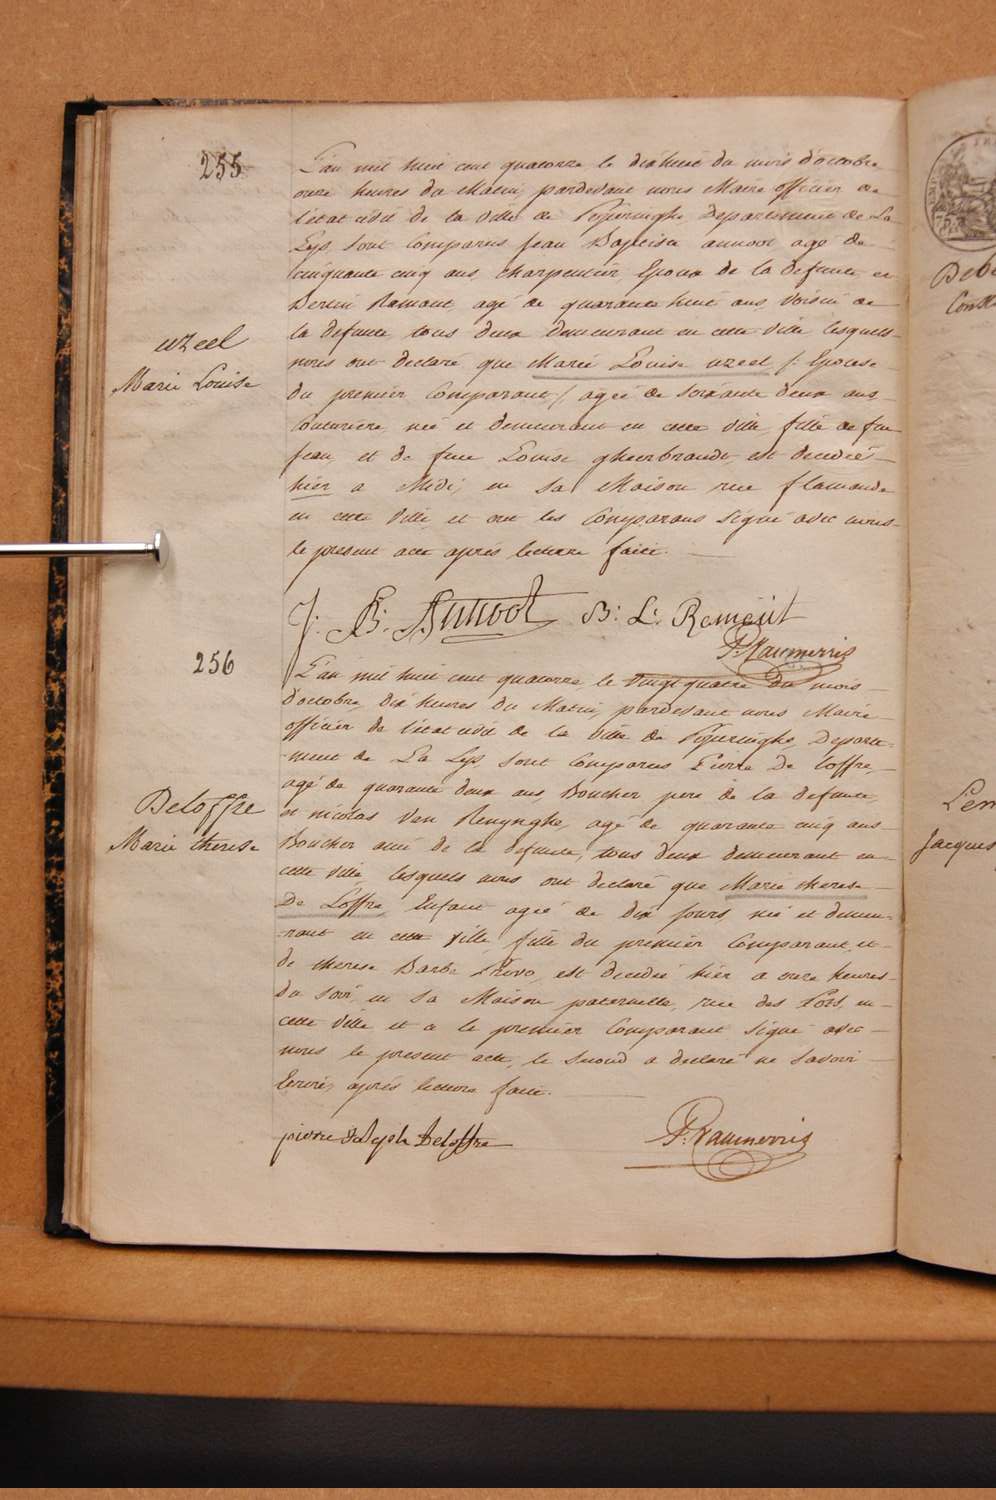 255
L'an mil huit cent quatorze le dixhuit du mois d'octobre
onze heures du Matin, pardevant nous Maire officier de
l'état civil de la ville de Poperinghe, Departement de La
Lys, sont Comparus Jean Baptiste annoot agé de
cinquante cinq ans, charpentier, Epoux de la defunte et
Remont, agé de quarante huit ans, Voisin de
la defunte tous deux demeurant en cette ville lesquels
nous ont declaré que Marie Louise uzeel /: Epouse
du premier Comparant :/ agée de soixante deux ans
Couturière, née et demeurant en cette ville, fille de feu
Jean, et de feue Louise gheerbrandt, est decedée
hier a Midi, en sa Maison rue flamande
en cette ville et ont les Comparans signé avec nous
le present acte après lecture faite.
uzeel
Marie Louise
J: B: Annoot B: L: Remont
P. Vaumerris
256
L'an mil huit cent quatorze, le vingt quatre du mois
d'octobre, dix heures du Matin, pardevant nous Maire
officier de l'état civil de la ville de Poperinghe, Departe-
ment de La Lys, sont Comparus Pierre De Loffre,
agé de quarante deux ans, Boucher pere de la defunte,
et nicolas Van Renynghe, agé de quarante cinq ans
Boucher ami de la defunte, tous deux demeurant en
cette ville, lesquels nous ont declaré que Marie therese
De Loffre, Enfant agée de dix jours née et demeu-
-rant en cette ville, fille du premier Comparant, et
de therese Barbe Provo, est decedée hier a onze heures
du soir, en sa Maison paternelle, rue des Pots, en
cette ville et a le premier Comparant signé avec
nous le present acte, le second a declaré ne savoir
Ecrire, après lecture faite.
Deloffre
Marie therese
pierre Joseph Deloffre
P. Vaumerris
Jacques